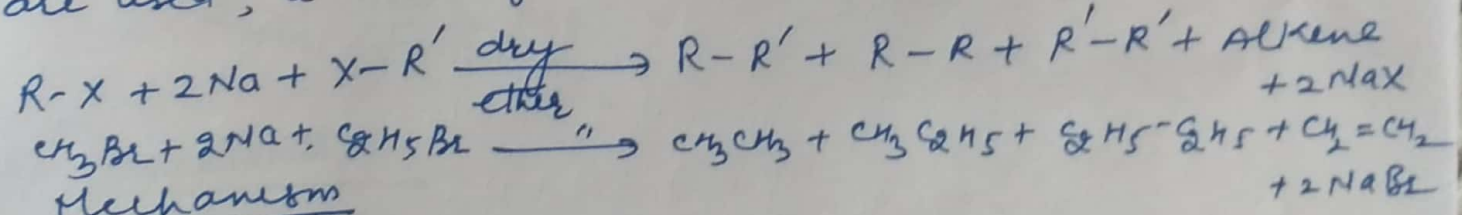 are used,
R-X + 2Na + X-R' dry ether → R-R' + R-R + R'-R' + Alkene
+ 2NaX
CH3Br + 2Na + C2H5Br " → CH3CH3 + CH3C2H5 + C2H5-C2H5 + CH2=CH2
+ 2NaBr
Mechanism